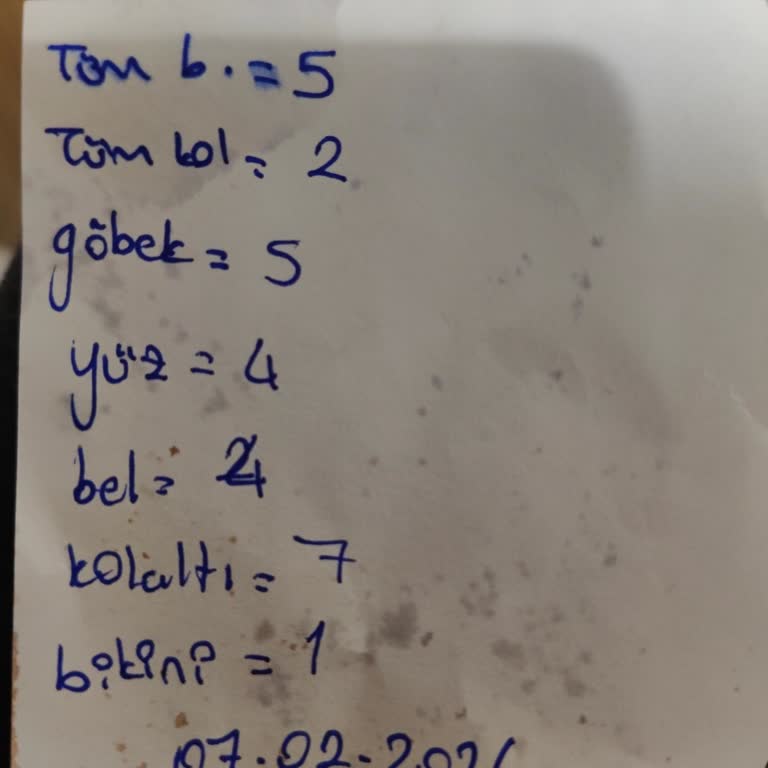 Tüm b. = 5
Tüm kol = 2
göbek = 5
yüz = 4
bel = 4
kolaltı = 7
bikini = 1
07.02.202